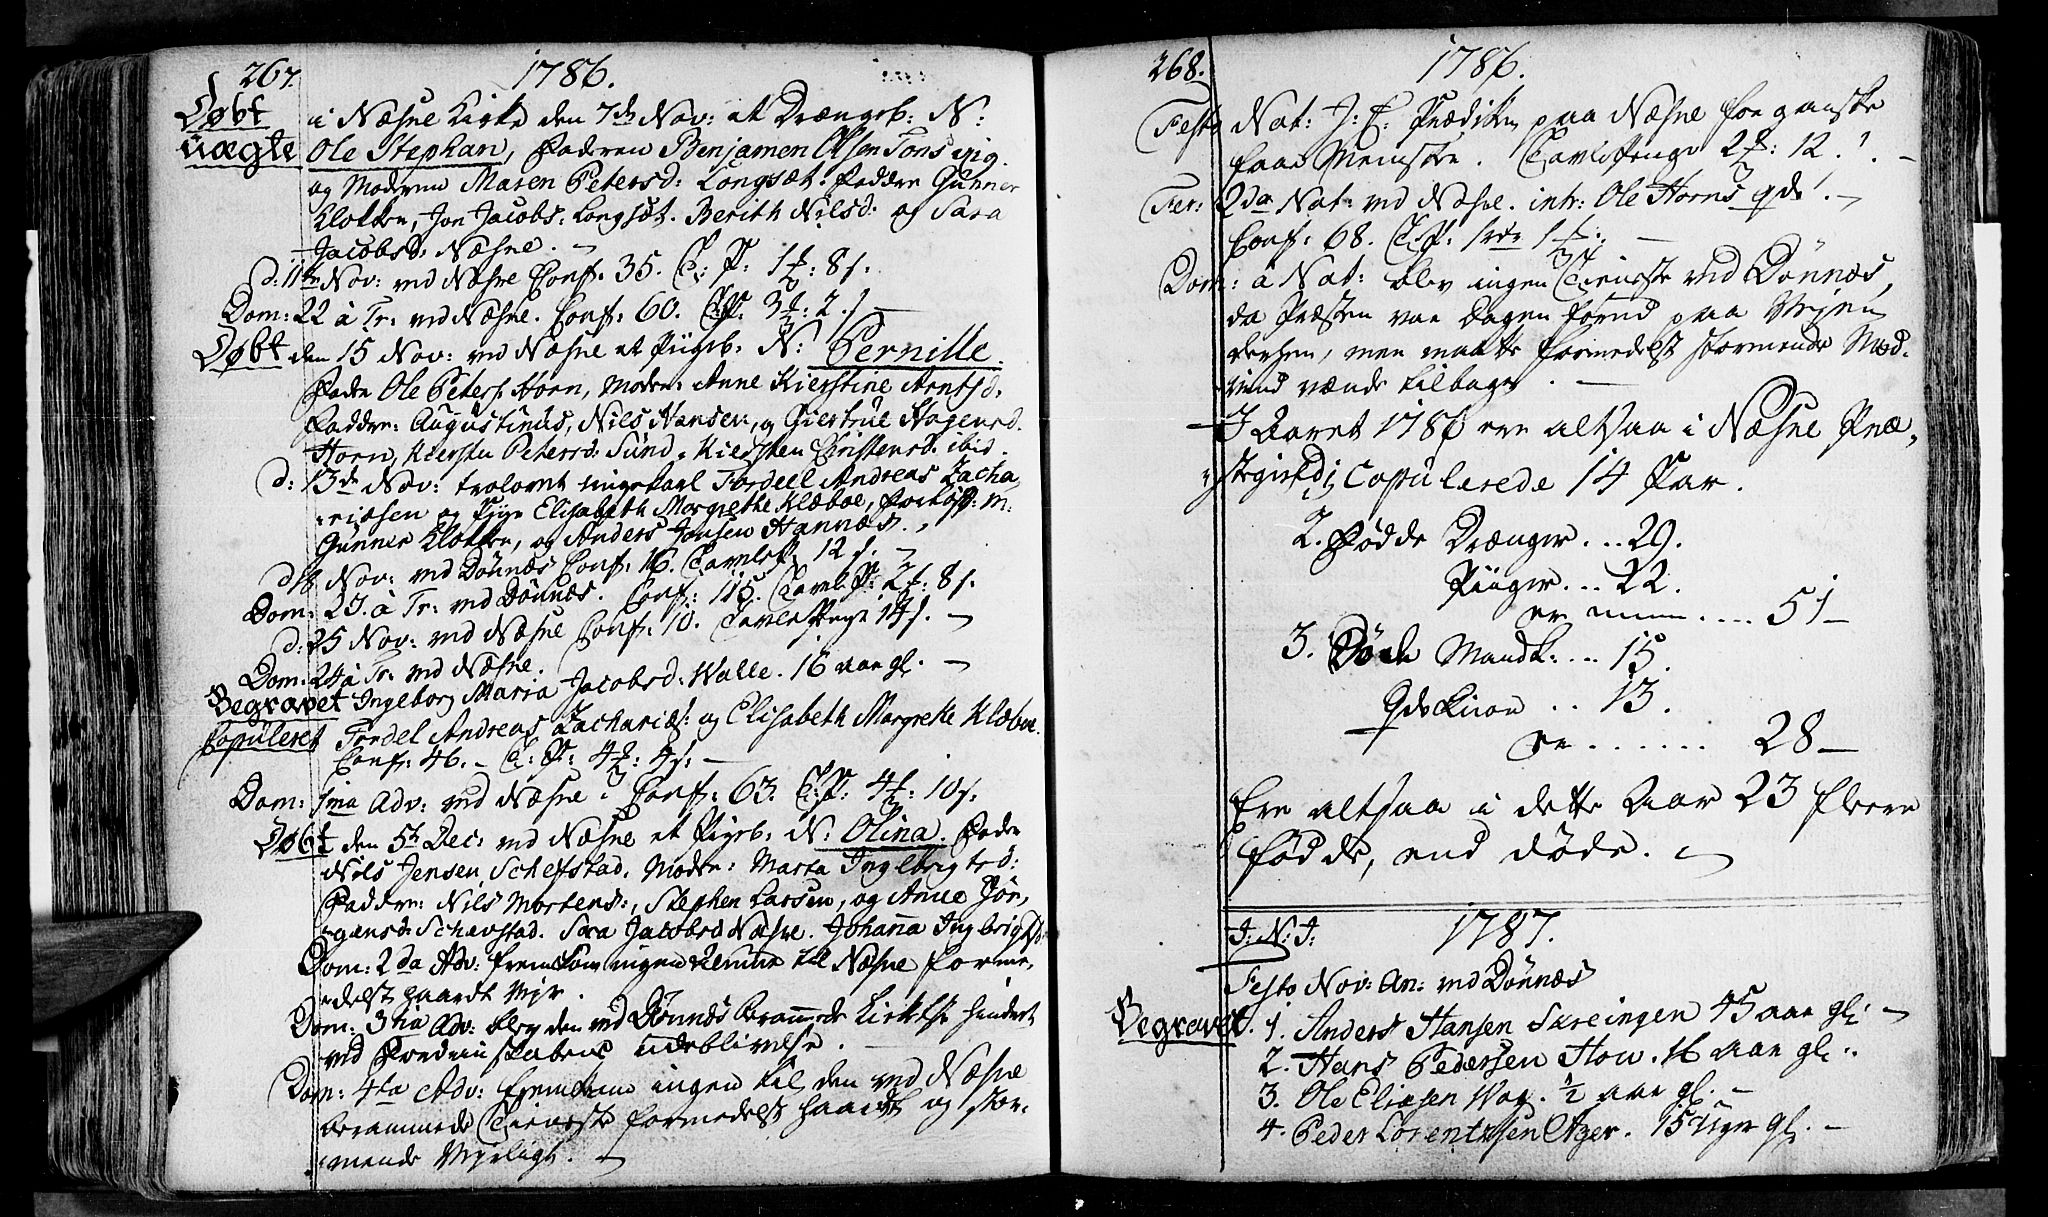 267. 1786.
Døbt i Næsne Kirke den 7de Nov: et Drængeb: N:
uægte Ole Stephan, Faderen Benjamen Olsen Tonsvig.
og Moderen Maren Petersd: Longsæt. Faddre Gunner
Klokker, Jon Jacobs: Longsæt. Berith Nilsd: og Sara
Jacobsd: Næsne. —
d: 11te Nov: ved Næsne Conf: 35. T: P: 1 : 8 s.
Dom: 22 à Tr: ved Næsne. Conf: 60. T:P: 3 : 2 s —
Døbt den 15 Nov: ved Næsne et Pigeb: N: Pernille.
Fader Ole Peters: Horn, Moder: Anne Kierstine Arntsd.
Faddre: Augustinus, Nils Hansen, og Giertrue Hagensd.
Horn, Kiersten Petersd: Sund, Kiersten Christensd: ibid.
d: 13de Nov: trolovet ungekarl Tordell Andreas Zacha,
riasen og Pige Elisabeth Margrethe Klæboe, Forlovs: M:
Gunner Klokker, og Anders Jonsen Hannæs.
d 18 Nov: ved Dønnæs Conf: 16. Tavlep. 12 s. —
Dom: 23. à Tr: ved Dønnæs. Conf: 115. Tavl: P: 2 : 8 s.
d: 25 Nov: ved Næsne Conf: 10. Tavle Penge 14 s. —
Dom: 24 à Tr: ved Næsne.
Begravet Ingeborg Maria Jacobsd: Walle. 16 aar gl. —
Copuleret Tordel Andreas Zacharias: og Elisabeth Margrete Klæboe.
Conf: 46. — T: P: 4 : 4 s. —
Dom: 1ma Adv: ved Næsne Conf: 63. T:P: 4 : 10 s.
Døbt den 5te Dec: ved Næsne et Pigeb: N: Olina. Fader
Nils Jensen Schefstad. Moder: Marta Ingebrigtsd:
Faddre: Nils Mortens:, Stephen Larsen, og Anne Jør,
gensd: Schevstad. Sara Jacobsd Næsne. Johanna Ingbrigtsd.
Dom: 2da Adv: fremkom ingen Almue til Næsne forme,
delst haardt Vejr.
Dom: 3tia Adv: blev den ved Dønnæs Berammede Kirketje hindret
ved Predicantskabens udeblivelse.
Dom: 4ta Adv: fremkom ingen til den ved Næsne
berammede Tieneste formedelst haardt og stor,
mende Vejrligt. —
268. 1786.
Festo Nat: J: C: Prædiken paa Næsne for ganske
faae Mennisker. Tavlepenge 2 : 12 s. —
Fer: 2da Nat: ved Næsne. intr: Ole Horns qde. —
Conf: 68. T:P: 1 —
Dom: à Nat: blev ingen Tieneste ved Dønnæs,
da Præsten var Dagen forud paa Vejen
derhen, men maatte formedelst stormende Mod,
vind vænde tilbage. —
I Aaret 1786 ere altsaa i Næsne Præ,
stegield 1) Copulerede 14 Par.
2. Fødde Drænger . . . 29.
Piiger . . . 22.
er summa . . . . 51 —
3. Døde Mandk: . . . 15.
Qvekiøn . . 13.
er . . . . . . . 28 —
Ere altsaa i dette Aar 23 fleere
fødde, end døde. —
J: N: J: 1787.
Festo Nov: An: ved Dønnæs
Begravet. 1. Anders Hansen Skeingen 45 aar gl: —
2. Hans Pedersen How. 16 aar gl:
3. Ole Eliasen Wog. ½ aar gl. —
4. Peder Lorentzsen Ager. 15 Uger gl. —